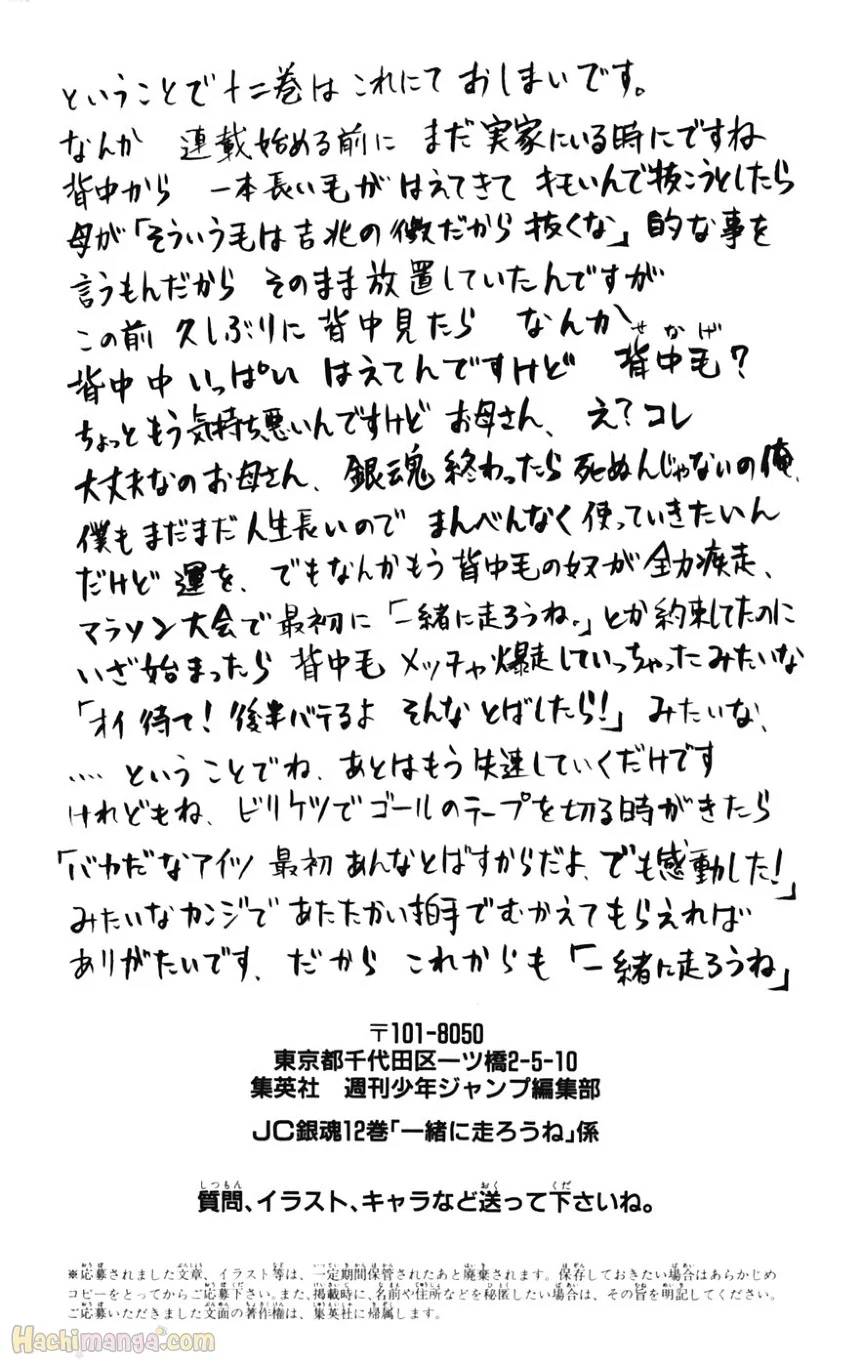 ということで十二巻は これにて おしまいです。
なんか 連載始める前に まだ実家にいる時にですね
背中から 一本長い毛が はえてきて キモいんで抜こうとしたら
母が「そういう毛は吉兆の徴だから 抜くな」的な事を
言うもんだから そのまま放置していたんですが
この前 久しぶりに 背中見たら なんか
背中中 いっぱい はえてんですけど 背中毛?
せなかげ
ちょっともう気持ち悪いんですけど お母さん、え?コレ
大丈夫なの お母さん、銀魂 終わったら 死ぬんじゃないの 俺、
僕もまだまだ人生長いので まんべんなく 使っていきたいん
だけど 運を、でもなんかもう 背中毛の奴が 全力疾走、
マラソン大会で最初に「一緒に走ろうね。」とか約束してたのに
いざ始まったら 背中毛 メッチャ爆走していっちゃったみたいな
「オイ待て!後半バテるよ そんな とばしたら!」みたいな、
‥‥ということでね、あとはもう 失速していくだけです
けれどもね、ビリケツでゴールのテープを切る時がきたら
「バカだなアイツ 最初 あんなとばすからだよ、でも感動した!」
みたいなカンジで あたたかい拍手でむかえてもらえれば
ありがたいです、だから これからも「一緒に走ろうね」
〒101-8050
東京都千代田区一ツ橋2-5-10
集英社 週刊少年ジャンプ編集部
JC銀魂12巻「一緒に走ろうね」係
質問、イラスト、キャラなど送って下さいね。
※応募されました文章、イラスト等は、一定期間保管されたあと廃棄されます。保存しておきたい場合はあらかじめ
コピーをとってからご応募下さい。また、掲載時に、名前や住所などを秘匿したい場合は、その旨を明記してください。
ご応募いただきました文面の著作権は、集英社に帰属します。
Hachimanga.com